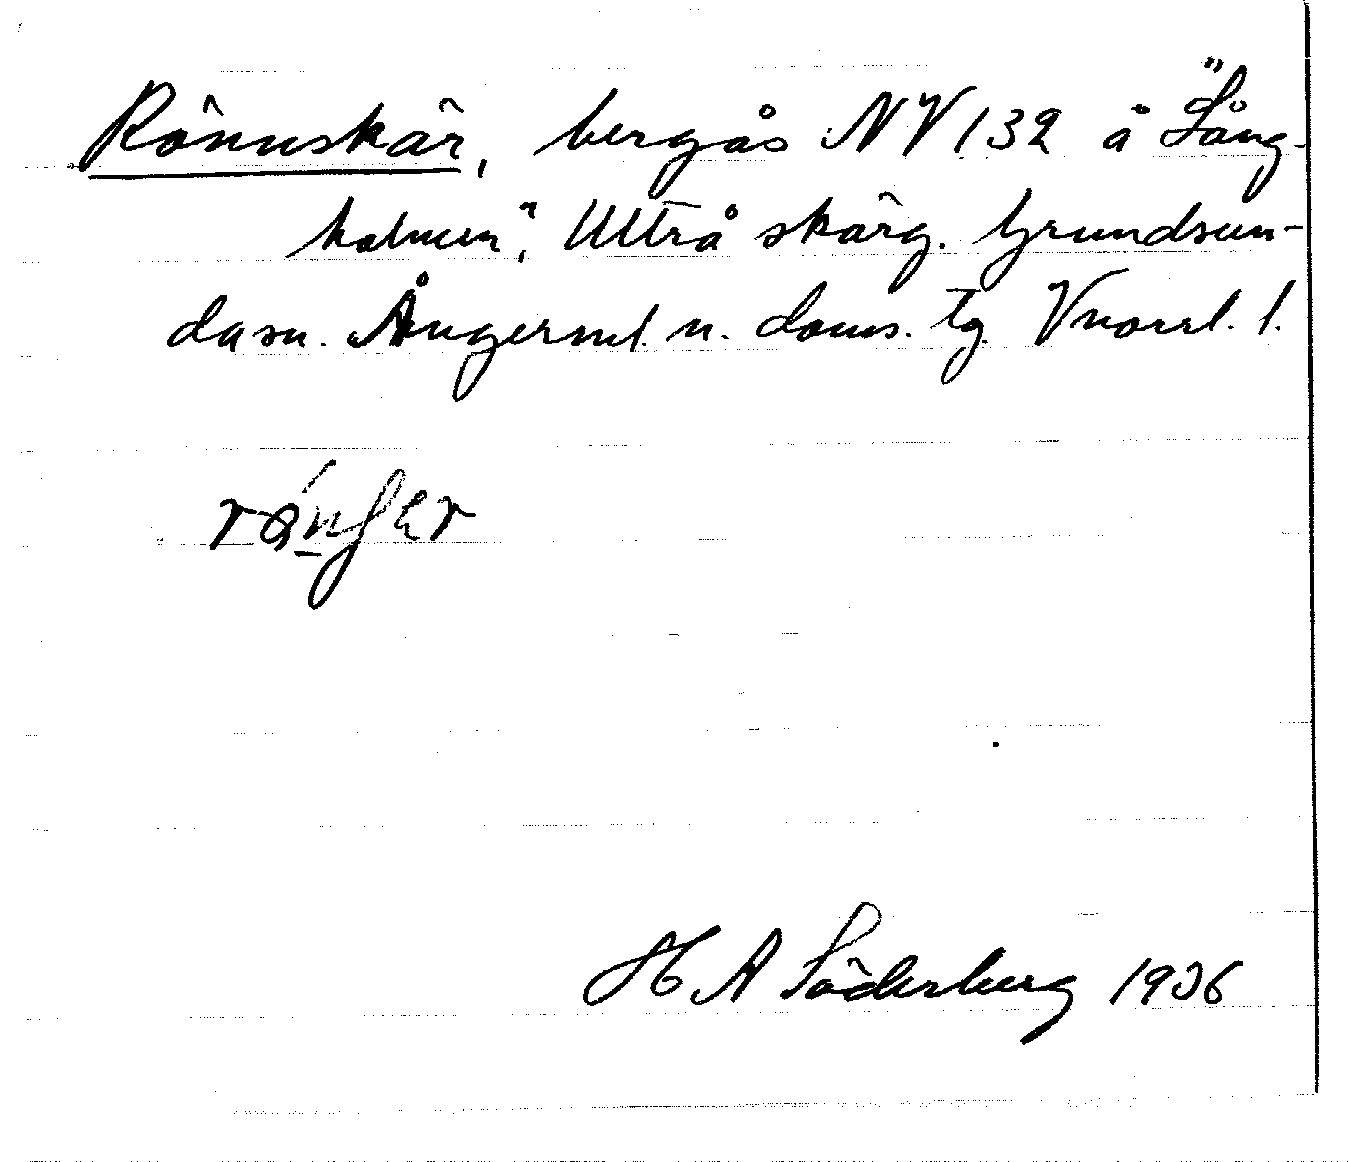 Rönnskär, bergås NV 132 å "Lång-
holmen", Ultrå skärg. Grundsun-
da sn. Ångerml. n. doms. tg. Vnorrl. l.
H A Söderberg 1936